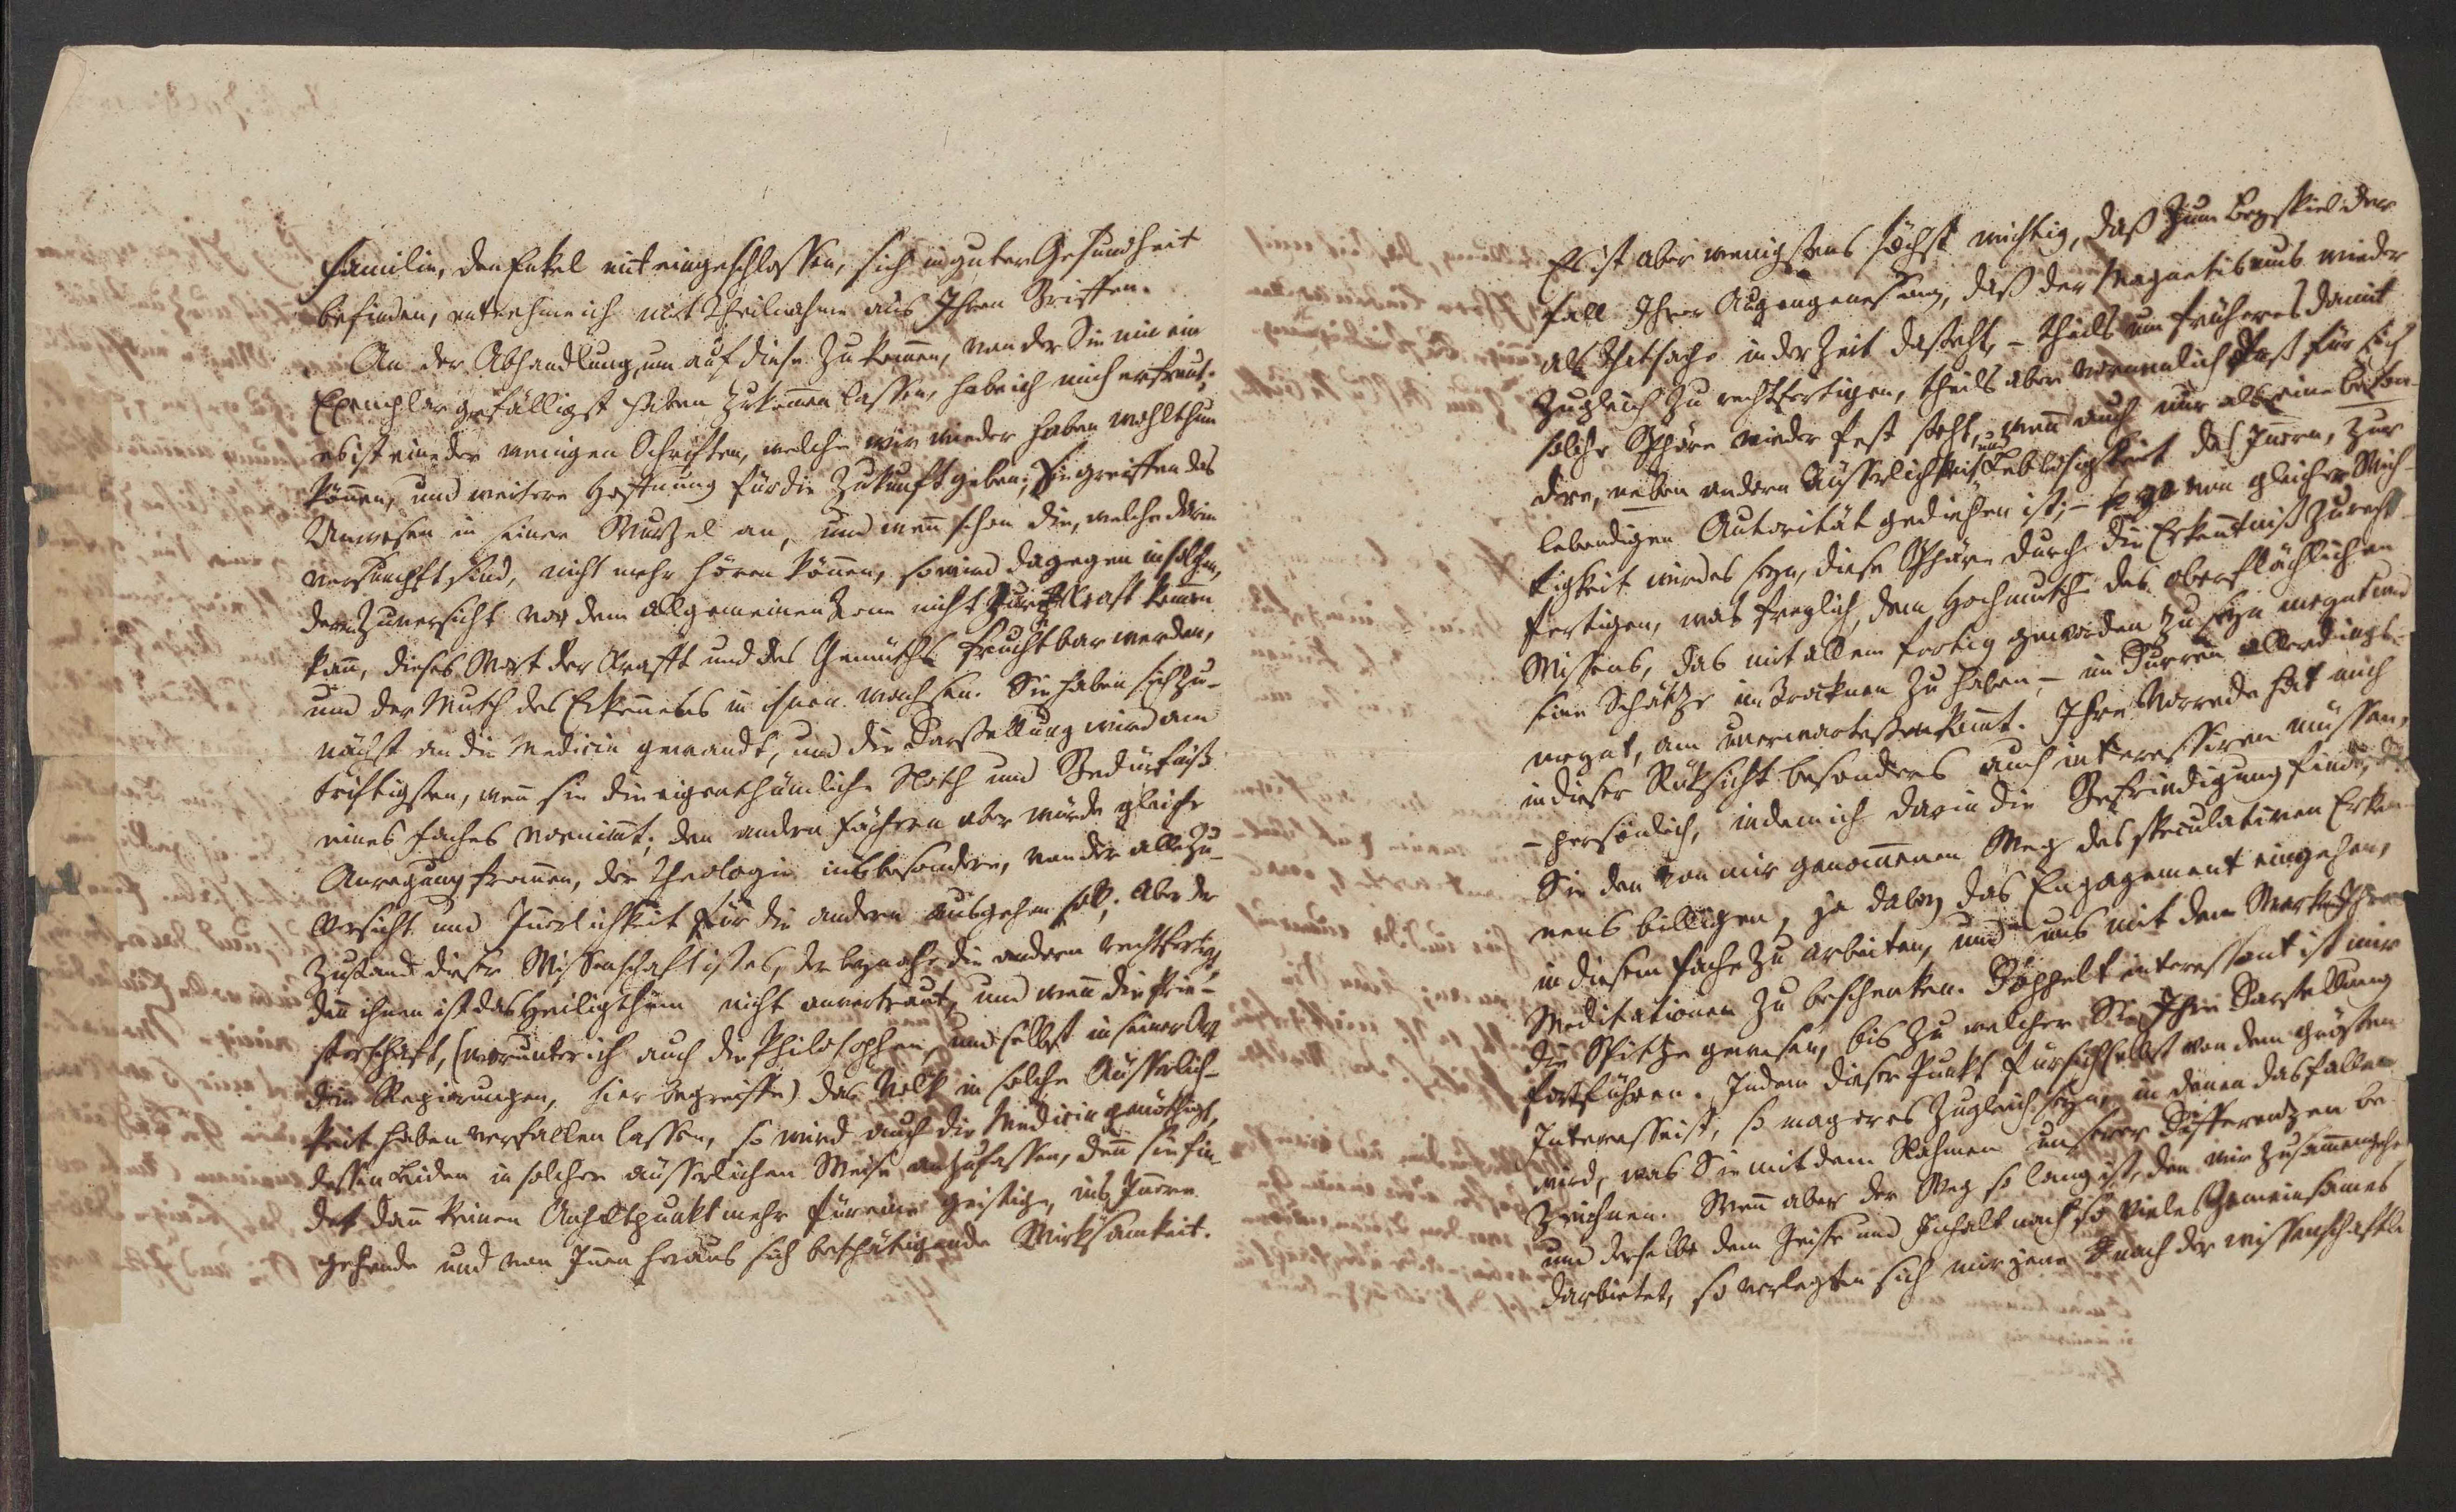 Familie, den Enkel mit eingeschlossen, sich in guter Gesundheit
befinden, entnehme ich mit Theilnahme aus Ihren Briefen.
An der Abhandlung, um auf diese zu kommen, von der Sie mir ein
Exemplar gefälligst haben zukommen lassen, habe ich mich erfreut;
es ist eine der wenigen Schriften, welche mir wieder haben wohlthun
können, und weitere Hoffnung für die Zukunft geben; Sie greiffen das
Unwesen in seiner Wurtzel an, und wenn schon die, welche darin
verknechtet sind, nicht mehr hören können, so wird dagegen in solchen,
deren Zuversicht vor dem allgemeinen Tone nicht zur Kraft kommen
kann, dieses Wort der Krafft und des Gemüths fruchtbar werden,
und der Muth des Erkennens in ihnen wachsen. Sie haben sich zu-
nächst an die Medicin gewandt, und die Darstellung wird am
triftigsten, wenn sie die eigenthümliche Noth und Bedürfniß
eines Faches vornimmt; den andern Fächern aber würde gleiche
Anregung frommen, der Theologie insbesondere, von der alle Zu-
versicht und Innerlichkeit für die andern ausgehen soll; aber der
Zustand dieser Wissenschaft ist es, der beynahe die andern rechtfertigt,
denn ihnen ist das Heiligthum nicht anvertraut, und wenn die Prie-
sterschaft, (worunter ich auch die Philosophen, und selbst in seiner Art
die Regierungen, hier begreiffe) das Volk in solche Äusserlich-
keit haben verfallen lassen, so wird auch die Medicin genöthigt,
dessen Leiden in solcher äusserlichen Weise anzufassen, denn sie fin-
det dann keinen Anhaltpunkt mehr für eine geistige, ins Innere
gehende und von Innen heraus sich bethätigende Wirksamkeit.
Es ist aber wenigstens höchst wichtig, daß zum Beyspiel der
Fall Ihrer Augengenesung, daß der Magnetismus wieder
als Thatsache in der Zeit dasteht, – theils um früheres damit
zugleich zu rechtfertigen, theils aber vornemlich daß für sich
solche Sphäre wieder fest steht, wenn auch nur als eine beson-
dere, neben andern Äusserlichkeit und Leblosigkeit des Innern, zur
lebendigen Autorität gediehen ist; – von gleicher Wich-
tigkeit wird es seyn, diese Sphäre durch die Erkenntniß zu recht-
fertigen, was freylich, dem Hochmuthe des oberflächlichen
Wissens, das mit allem fertig geworden zu seyn meynt und
seine Schätze im Trocknen zu haben, – im Dürren allerdings –
meynt, am unerwartetsten kömmt. Ihre Vorrede hat mich
in dieser Rüksicht besonders auch interessiren müssen,
– persönlich, indem ich darin die Befriedigung finde, daß
Sie den von mir genommenen Weg des speculativen Erken-
nens billigen, ja dabey das Engagement eingehen,
in diesem Fache zu arbeiten, und uns mit dem Werke Ihrer
Meditationen zu beschenken. Doppelt interessant ist mir
die Spitze gewesen, bis zu welcher Sie Ihre Darstellung
fortführen. Indem dieser Punkt für sich selbst von dem grösten
Interesse ist, so mag er es zugleich seyn, in denen das fallen
wird, was Sie mit dem Nahmen unserer Differentzen be-
zeichnen. Wenn aber der Weg so lang ist, den wir zusammengehen
und derselbe dem Geiste und Inhalt nach so vieles Gemeinsames
darbietet, so verlegten sich mir jene nach der wissenschaftli